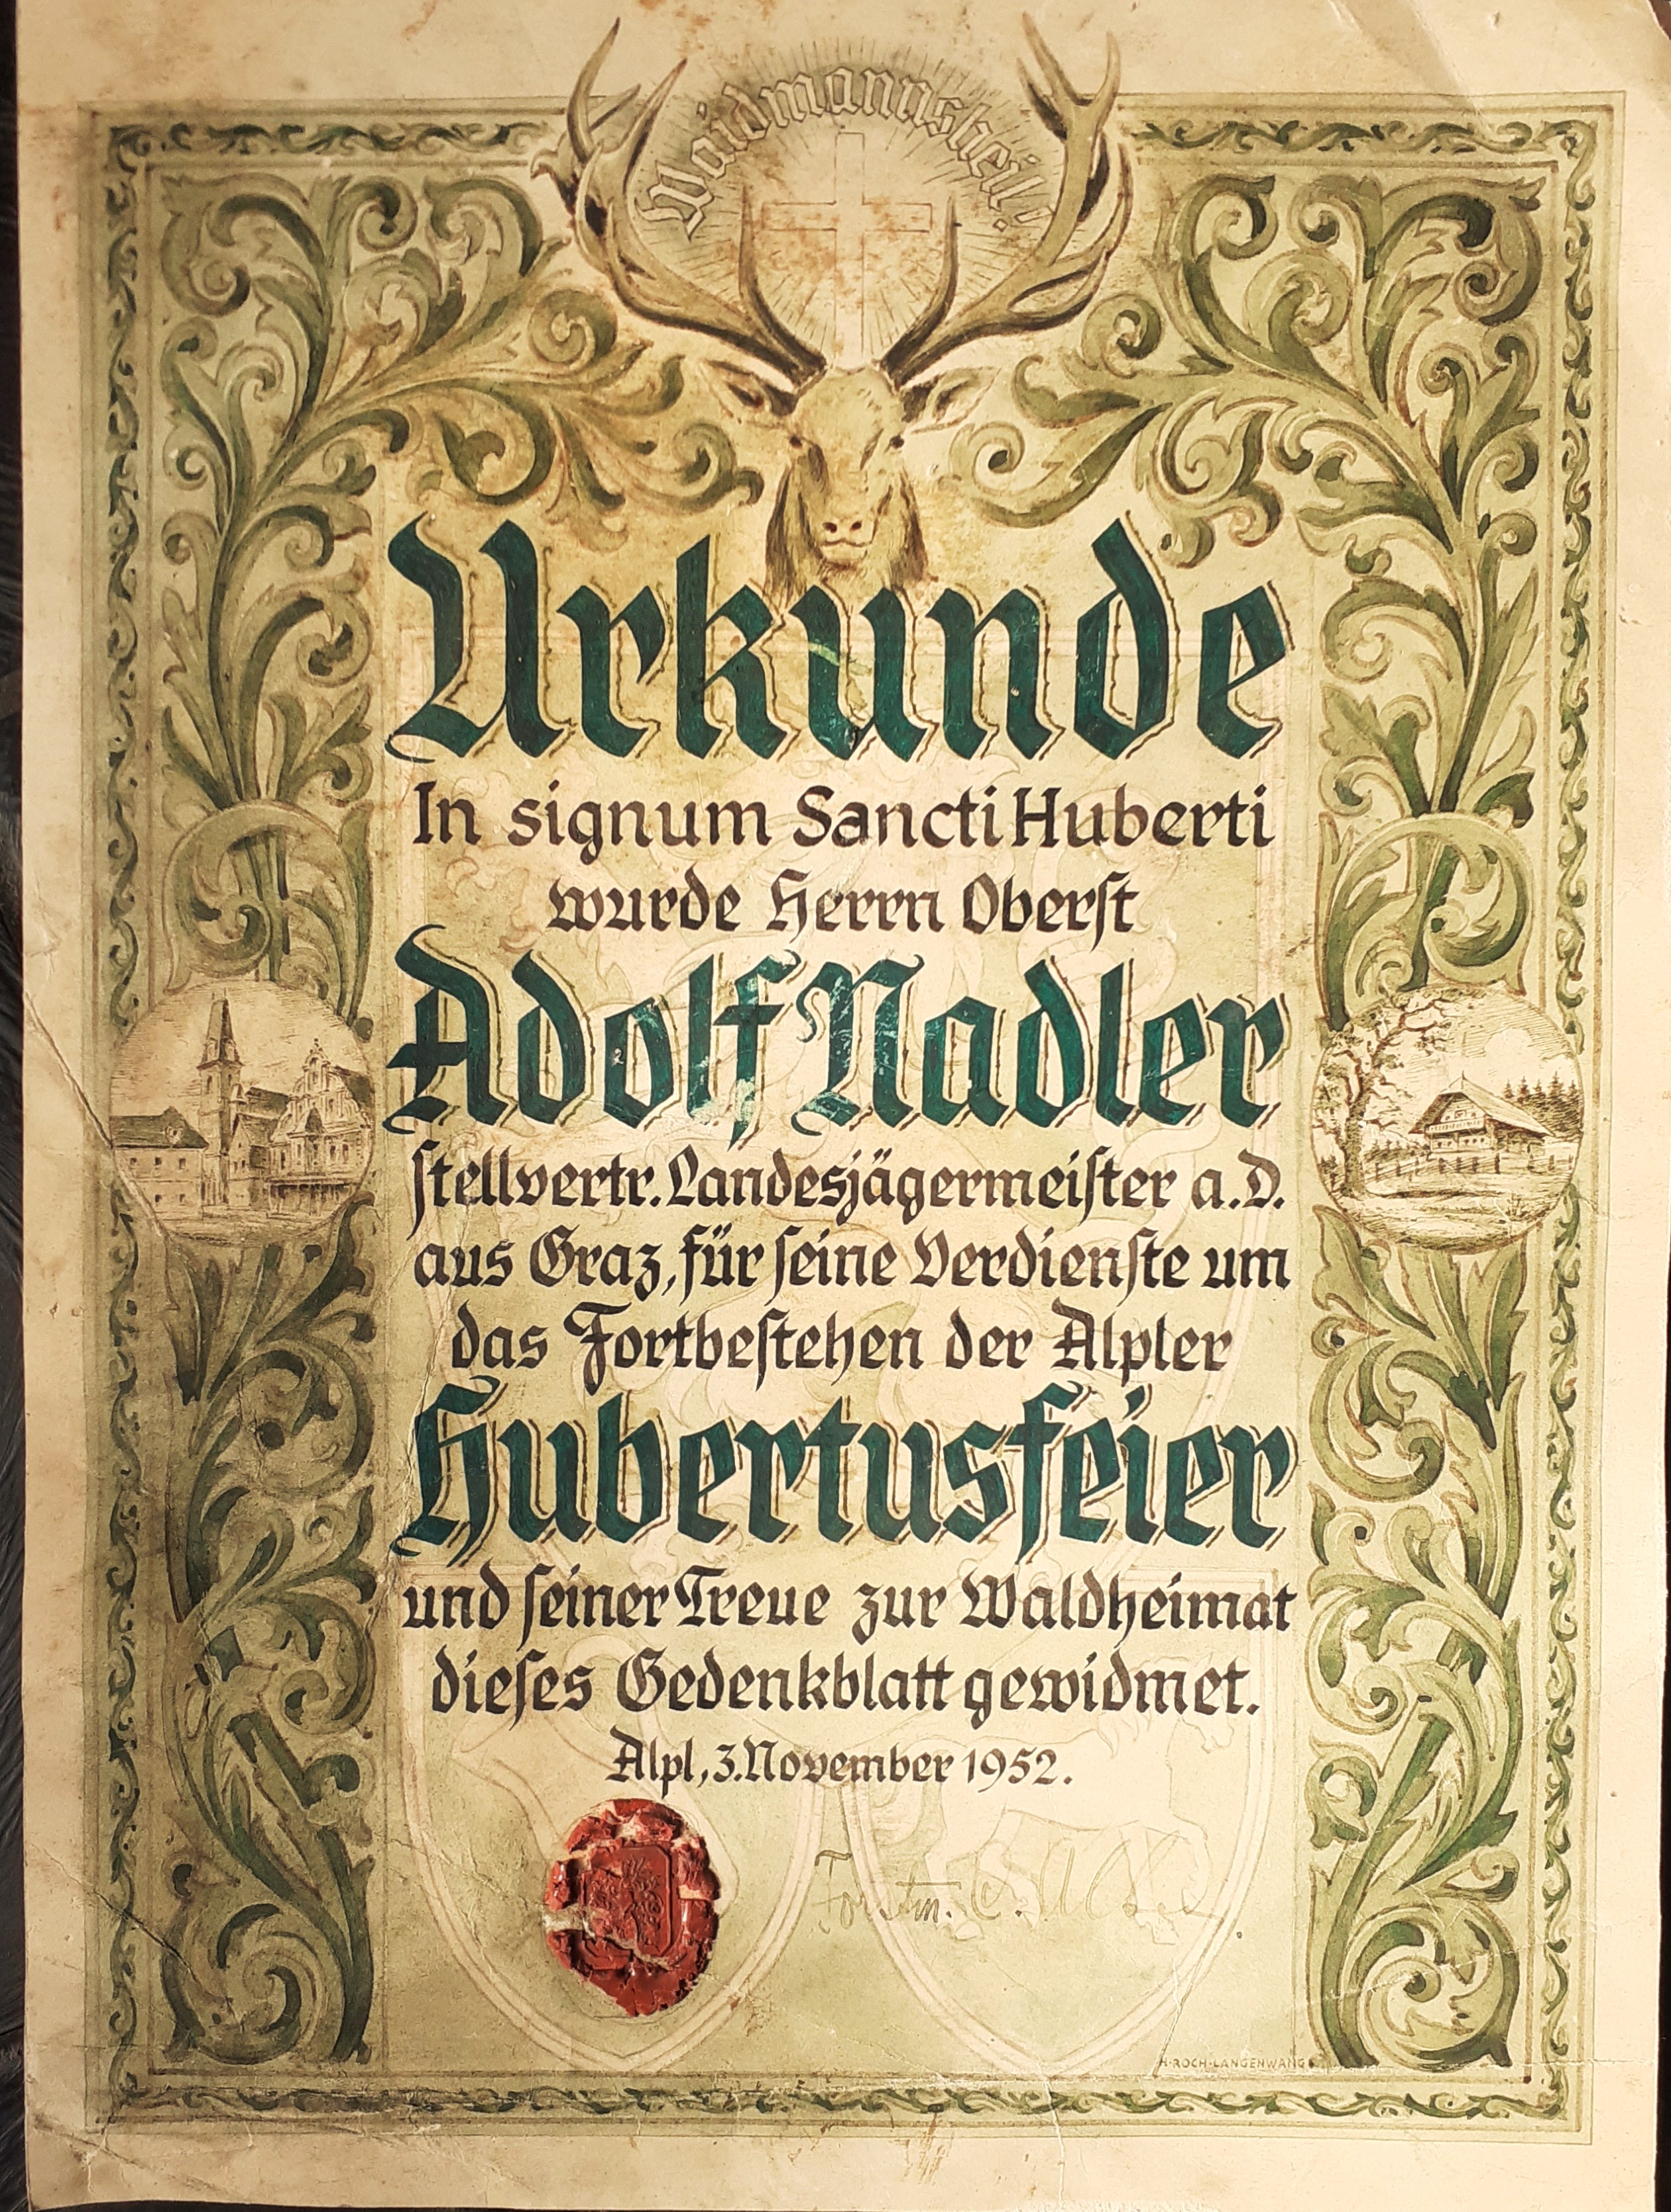 Waidmannsheil!
Urkunde
In signum Sancti Huberti
wurde Herrn Oberst
Adolf Nadler
stellvertr. Landesjägermeister a.D.
aus Graz, für seine Verdienste um
das Fortbestehen der Alpler
Hubertusfeier
und seiner Treue zur Waldheimat
dieses Gedenkblatt gewidmet.
Alpl, 3. November 1952.
H·ROCH·LANGENWANG